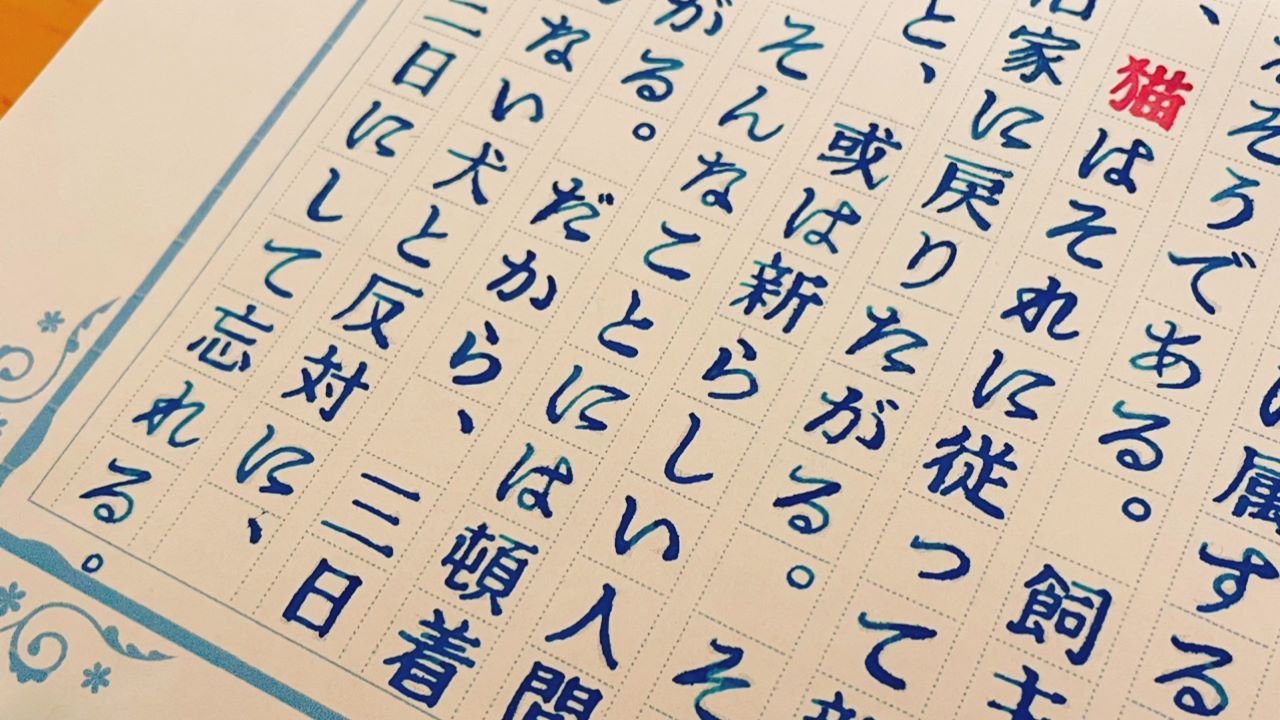 属する
そうである。　飼主
、猫はそれに従って新
家に戻りたがる。そ
と、或は新らしい人間
そんなことには頓着
がる。だから、三日
ない犬と反対に、
三日にして忘れる。